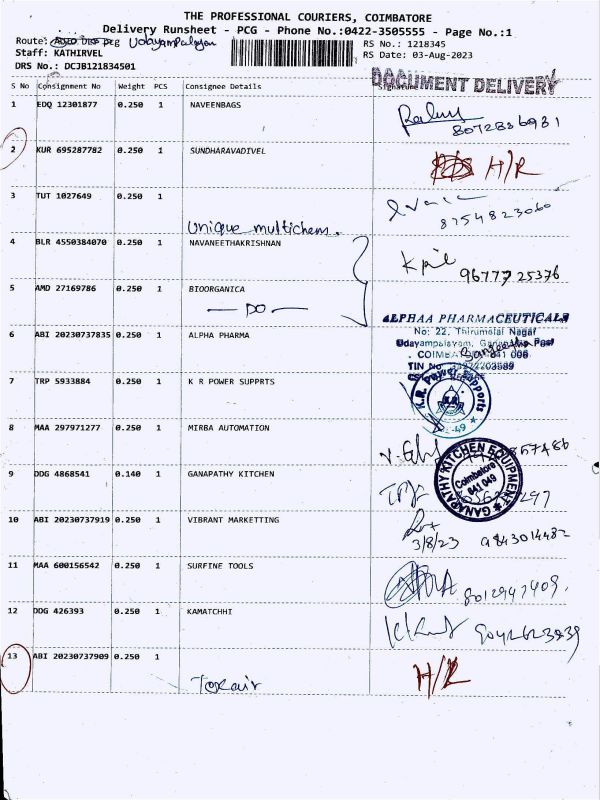 THE PROFESSIONAL COURIERS, COIMBATORE
Delivery Runsheet - PCG - Phone No.:0422-3505555 - Page No.:1
Route: Udayampalayam
RS No.: 1218345
Staff: KATHIRVEL
RS Date: 03-Aug-2023
DRS No.: DCJB121834501
DOCUMENT DELIVERY
S No Consignment No Weight PCS Consignee Details Signature
1 EDQ 12301877 0.250 1 NAVEENBAGS
8072836981
2 KUR 695287782 0.250 1 SUNDHARAVADIVEL H/R
3 TUT 1027649 0.250 1
8754823060
Unique multichem.
4 BLR 4550384070 0.250 1 NAVANEETHAKRISHNAN
9677725376
5 AMD 27169786 0.250 1 BIOORGANICA
— DO —
ALPHAA PHARMACEUTICALS
No: 22, Thirumalai Nagar
Udayampalayam, Ganapathy Post
6 ABI 20230737835 0.250 1 ALPHA PHARMA
COIMBATORE 641 006
TIN No
7 TRP 5933884 0.250 1 K R POWER SUPPRTS
K.R. Power Supports
K.R
8 MAA 297971277 0.250 1 MIRBA AUTOMATION
9 DDG 4868541 0.140 1 GANAPATHY KITCHEN
GANAPATHY KITCHEN EQUIPMENT
Coimbatore
641 049
10 ABI 20230737919 0.250 1 VIBRANT MARKETTING
3/8/23 9843014482
11 MAA 600156542 0.250 1 SURFINE TOOLS
8012947409.
12 DDG 426393 0.250 1 KAMATCHHI
9042623939
13 ABI 20230737909 0.250 1 H/R
Torair